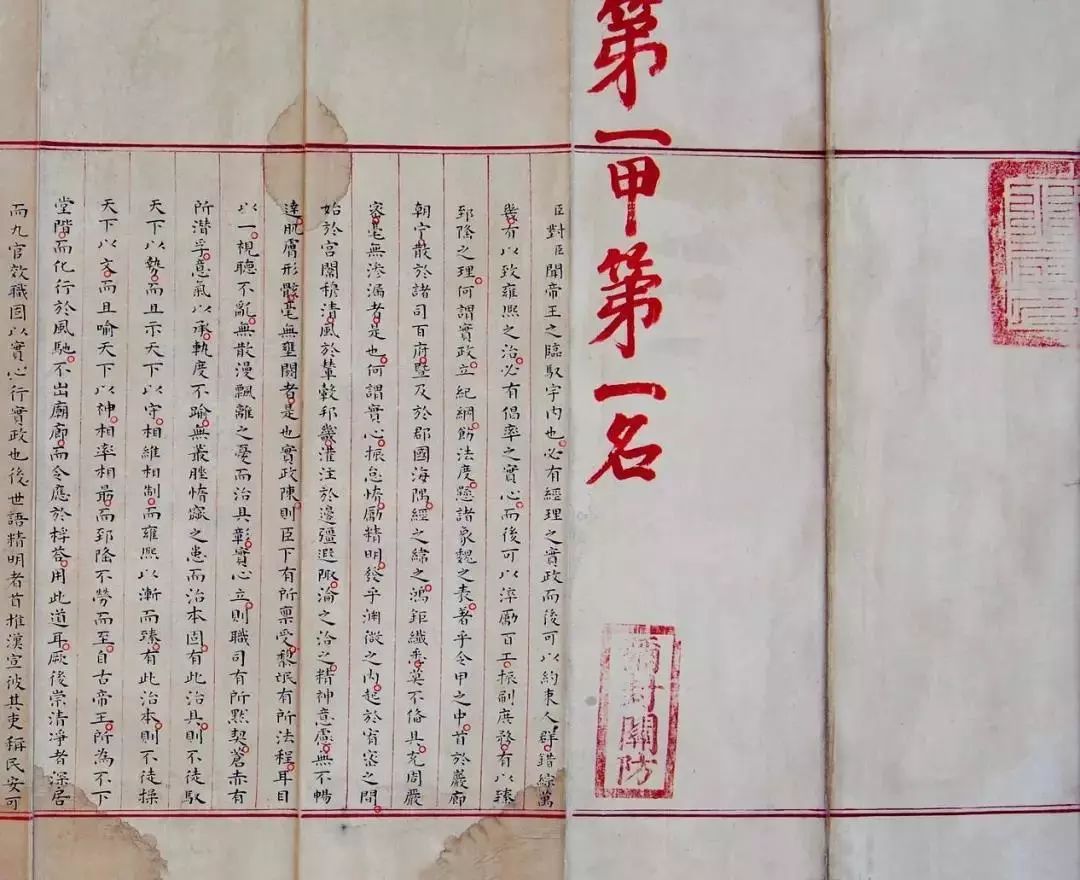 第一甲第一名
彌封關防
臣對臣聞帝王之臨馭宇內也必有經理之實政而後可以約束人群錯綜萬
幾有以致雍熙之治必有倡率之實心而後可以淬勵百工振刷庶務有以臻
郅隆之理何謂實政立紀綱飭法度懸諸象魏之表著乎令甲之中首於巖廊
朝宁散於諸司百府暨及於郡國海隅經之緯之鴻鉅纖悉莫不俻具充周嚴
密毫無滲漏者是也何謂實心振怠惰勵精明發乎淵微之內起於宥密之間
始於宮闈穆清風於輦轂邦畿灌注於邊疆遐陬淪之洽之精神意慮無不暢
達肌膚形骸毫無壅閼者是也實政陳則臣下有所稟受黎氓有所法程耳目
以一視聽不亂無散漫飄離之憂而治具彰實心立則職司有所默契蒼赤有
所潛孚意氣以承軌度不踰無叢脞惰窳之患而治本固有此治具則不徒馭
天下以勢而且示天下以守相維相制而雍熙以漸而臻有此治本則不徒操
天下以文而且喻天下以神相率相最而郅隆不勞而至自古帝王所為不下
堂階而化行於風馳不出廟廊而令應於桴答用此道耳厥後崇清凈者深居
而九官效職固以實心行實政也後世語精明者首推漢宣彼其吏稱民安可